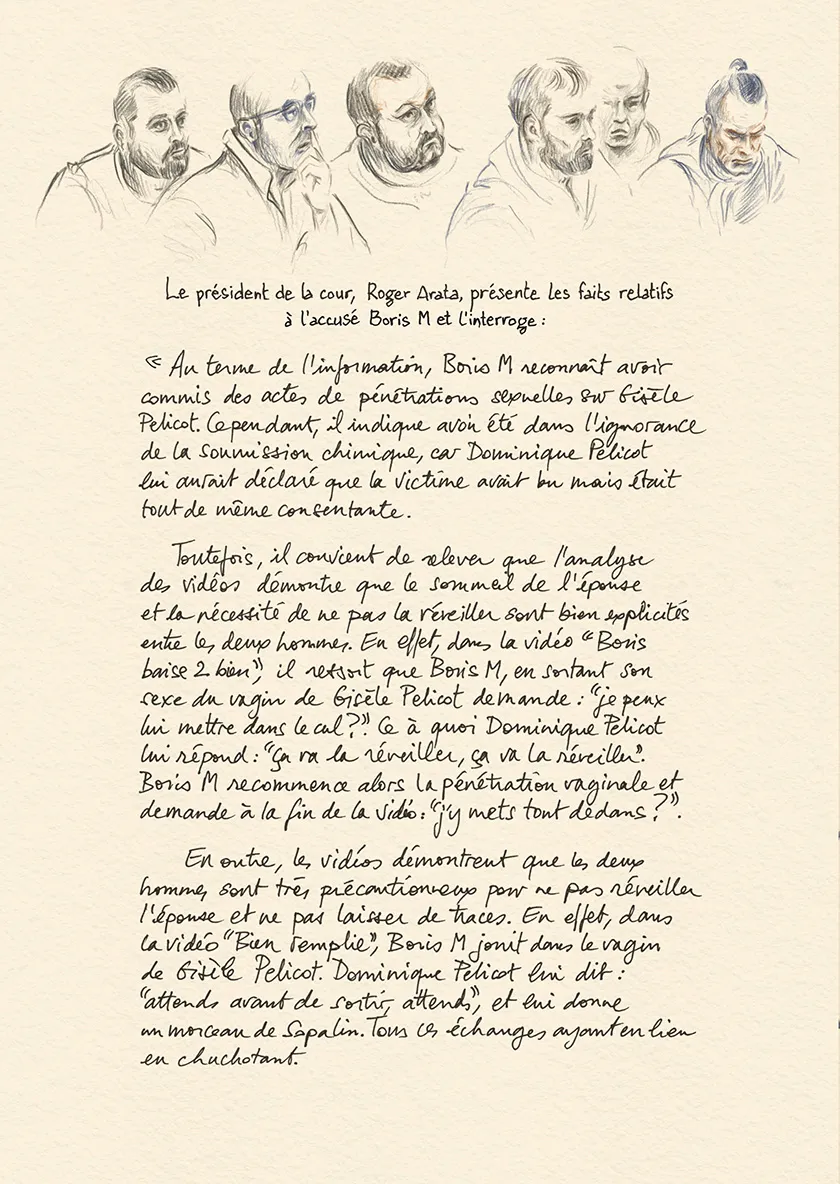 Le président de la cour, Roger Arata, présente les faits relatifs
à l'accusé Boris M et l'interroge :
« Au terme de l'information, Boris M reconnaît avoir
commis des actes de pénétrations sexuelles sur Gisèle
Pelicot. Cependant, il indique avoir été dans l'ignorance
de la soumission chimique, car Dominique Pélicot
lui aurait déclaré que la victime avait bu mais était
tout de même consentante.
Toutefois, il convient de relever que l'analyse
des vidéos démontre que le sommeil de l'épouse
et la nécessité de ne pas la réveiller sont bien explicités
entre les deux hommes. En effet, dans la vidéo “Boris
baise 2 bien”, il ressort que Boris M, en sortant son
sexe du vagin de Gisèle Pelicot demande : “je peux
lui mettre dans le cul ?”. Ce à quoi Dominique Pélicot
lui répond : “ça va la réveiller, ça va la réveiller”.
Boris M recommence alors la pénétration vaginale et
demande à la fin de la vidéo : “j'y mets tout dedans ?”.
En outre, les vidéos démontrent que les deux
hommes sont très précautionneux pour ne pas réveiller
l'épouse et ne pas laisser de traces. En effet, dans
la vidéo “Bien remplie”, Boris M jouit dans le vagin
de Gisèle Pelicot. Dominique Pélicot lui dit :
“attends avant de sortir, attends”, et lui donne
un morceau de Sopalin. Tous ces échanges ayant eu lieu
en chuchotant.